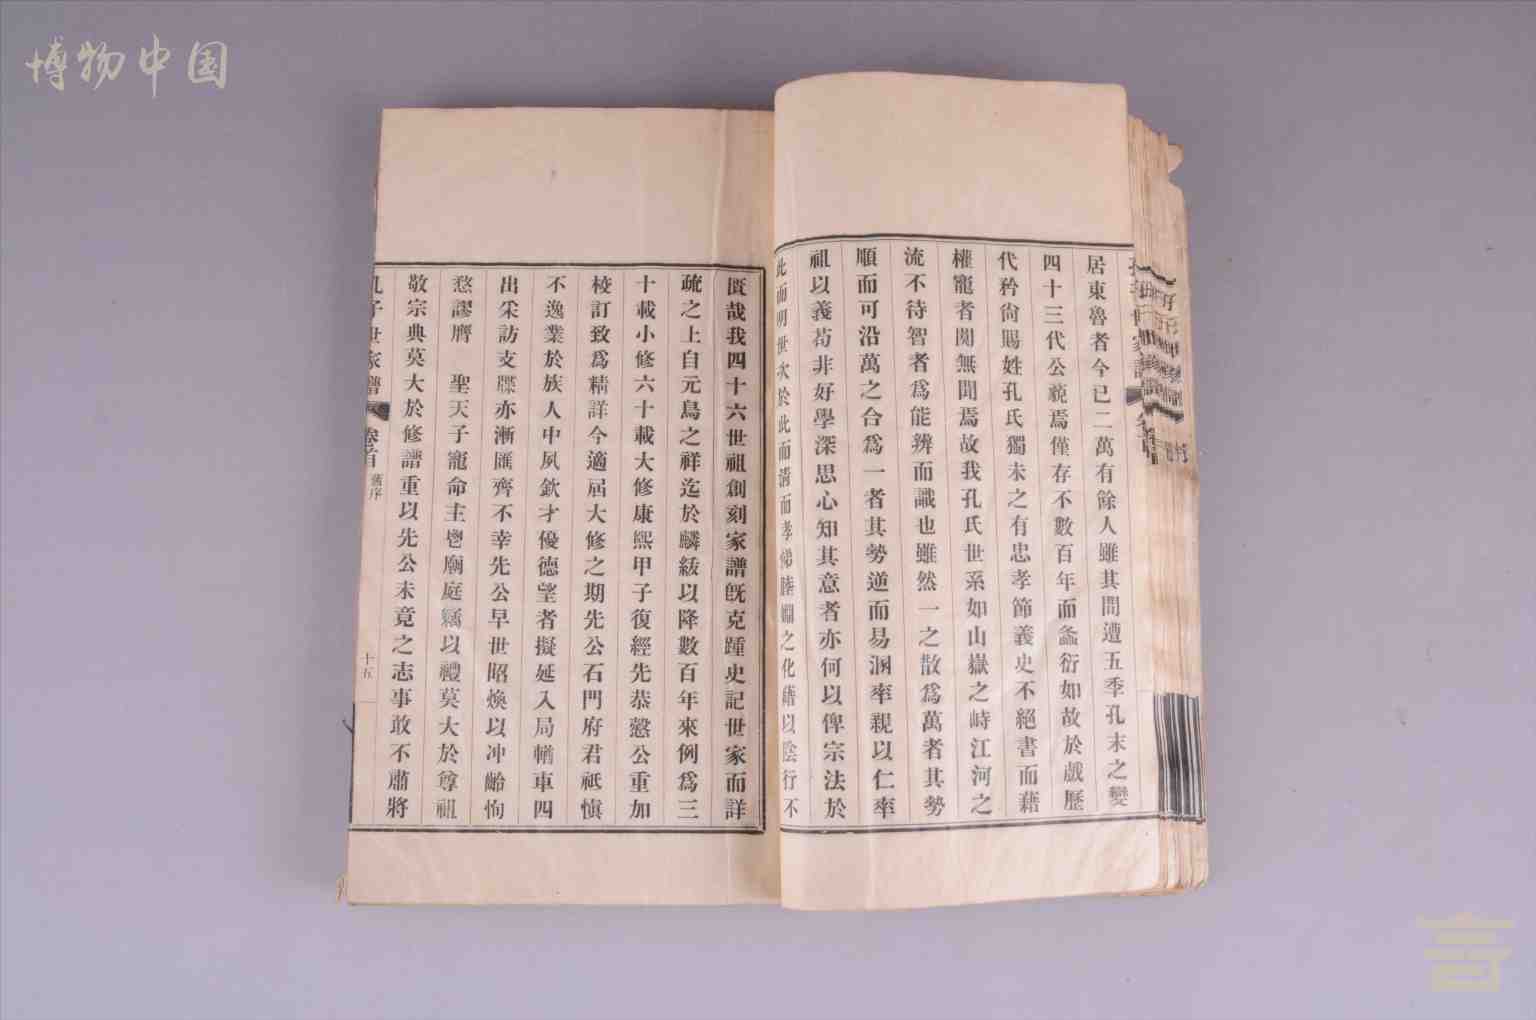 博物中国
居東魯者今已二萬有餘人雖其間遭五季孔末之變
四十三代公蛻焉僅存不數百年而螽衍如故於戲歷
代矜尙賜姓孔氏獨未之有忠孝節義史不絕書而藉
權寵者闃無聞焉故我孔氏世系如山嶽之峙江河之
流不待智者爲能辨而識也雖然一之散爲萬者其勢
順而可沿萬之合爲一者其勢逆而易溷率親以仁率
祖以義苟非好學深思心知其意者亦何以俾宗法於
此而明世次於此而清而孝悌睦婣之化藉以陰行不
匱哉我四十六世祖創刻家譜旣克踵史記世家而詳
疏之上自元鳥之祥迄於麟紱以降數百年來例爲三
十載小修六十載大修康熙甲子復經先恭慤公重加
校訂致爲精詳今適屆大修之期先公石門府君祗愼
不逸業於族人中夙欽才優德望者擬延入局輶車四
出采訪支牒亦漸匯齊不幸先公早世昭煥以冲齡恂
愗謬膺 聖天子寵命主鬯廟庭竊以禮莫大於尊祖
敬宗典莫大於修譜重以先公未竟之志事敢不肅將
孔子世家譜 卷首 舊序 十五